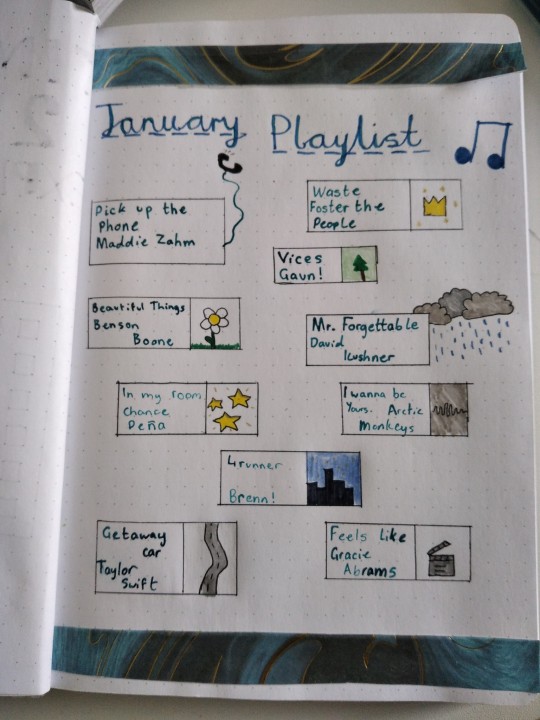 January Playlist
Pick up the
Phone
Maddie Zahm
Waste
Foster the
People
Vices
Gavn!
Beautiful Things
Benson
Boone
Mr. Forgettable
David
Kushner
In my room
Chance
Peña
I wanna be
Yours. Arctic
Monkeys
4runner
Brenn!
Getaway
car
Taylor
Swift
Feels Like
Gracie
Abrams